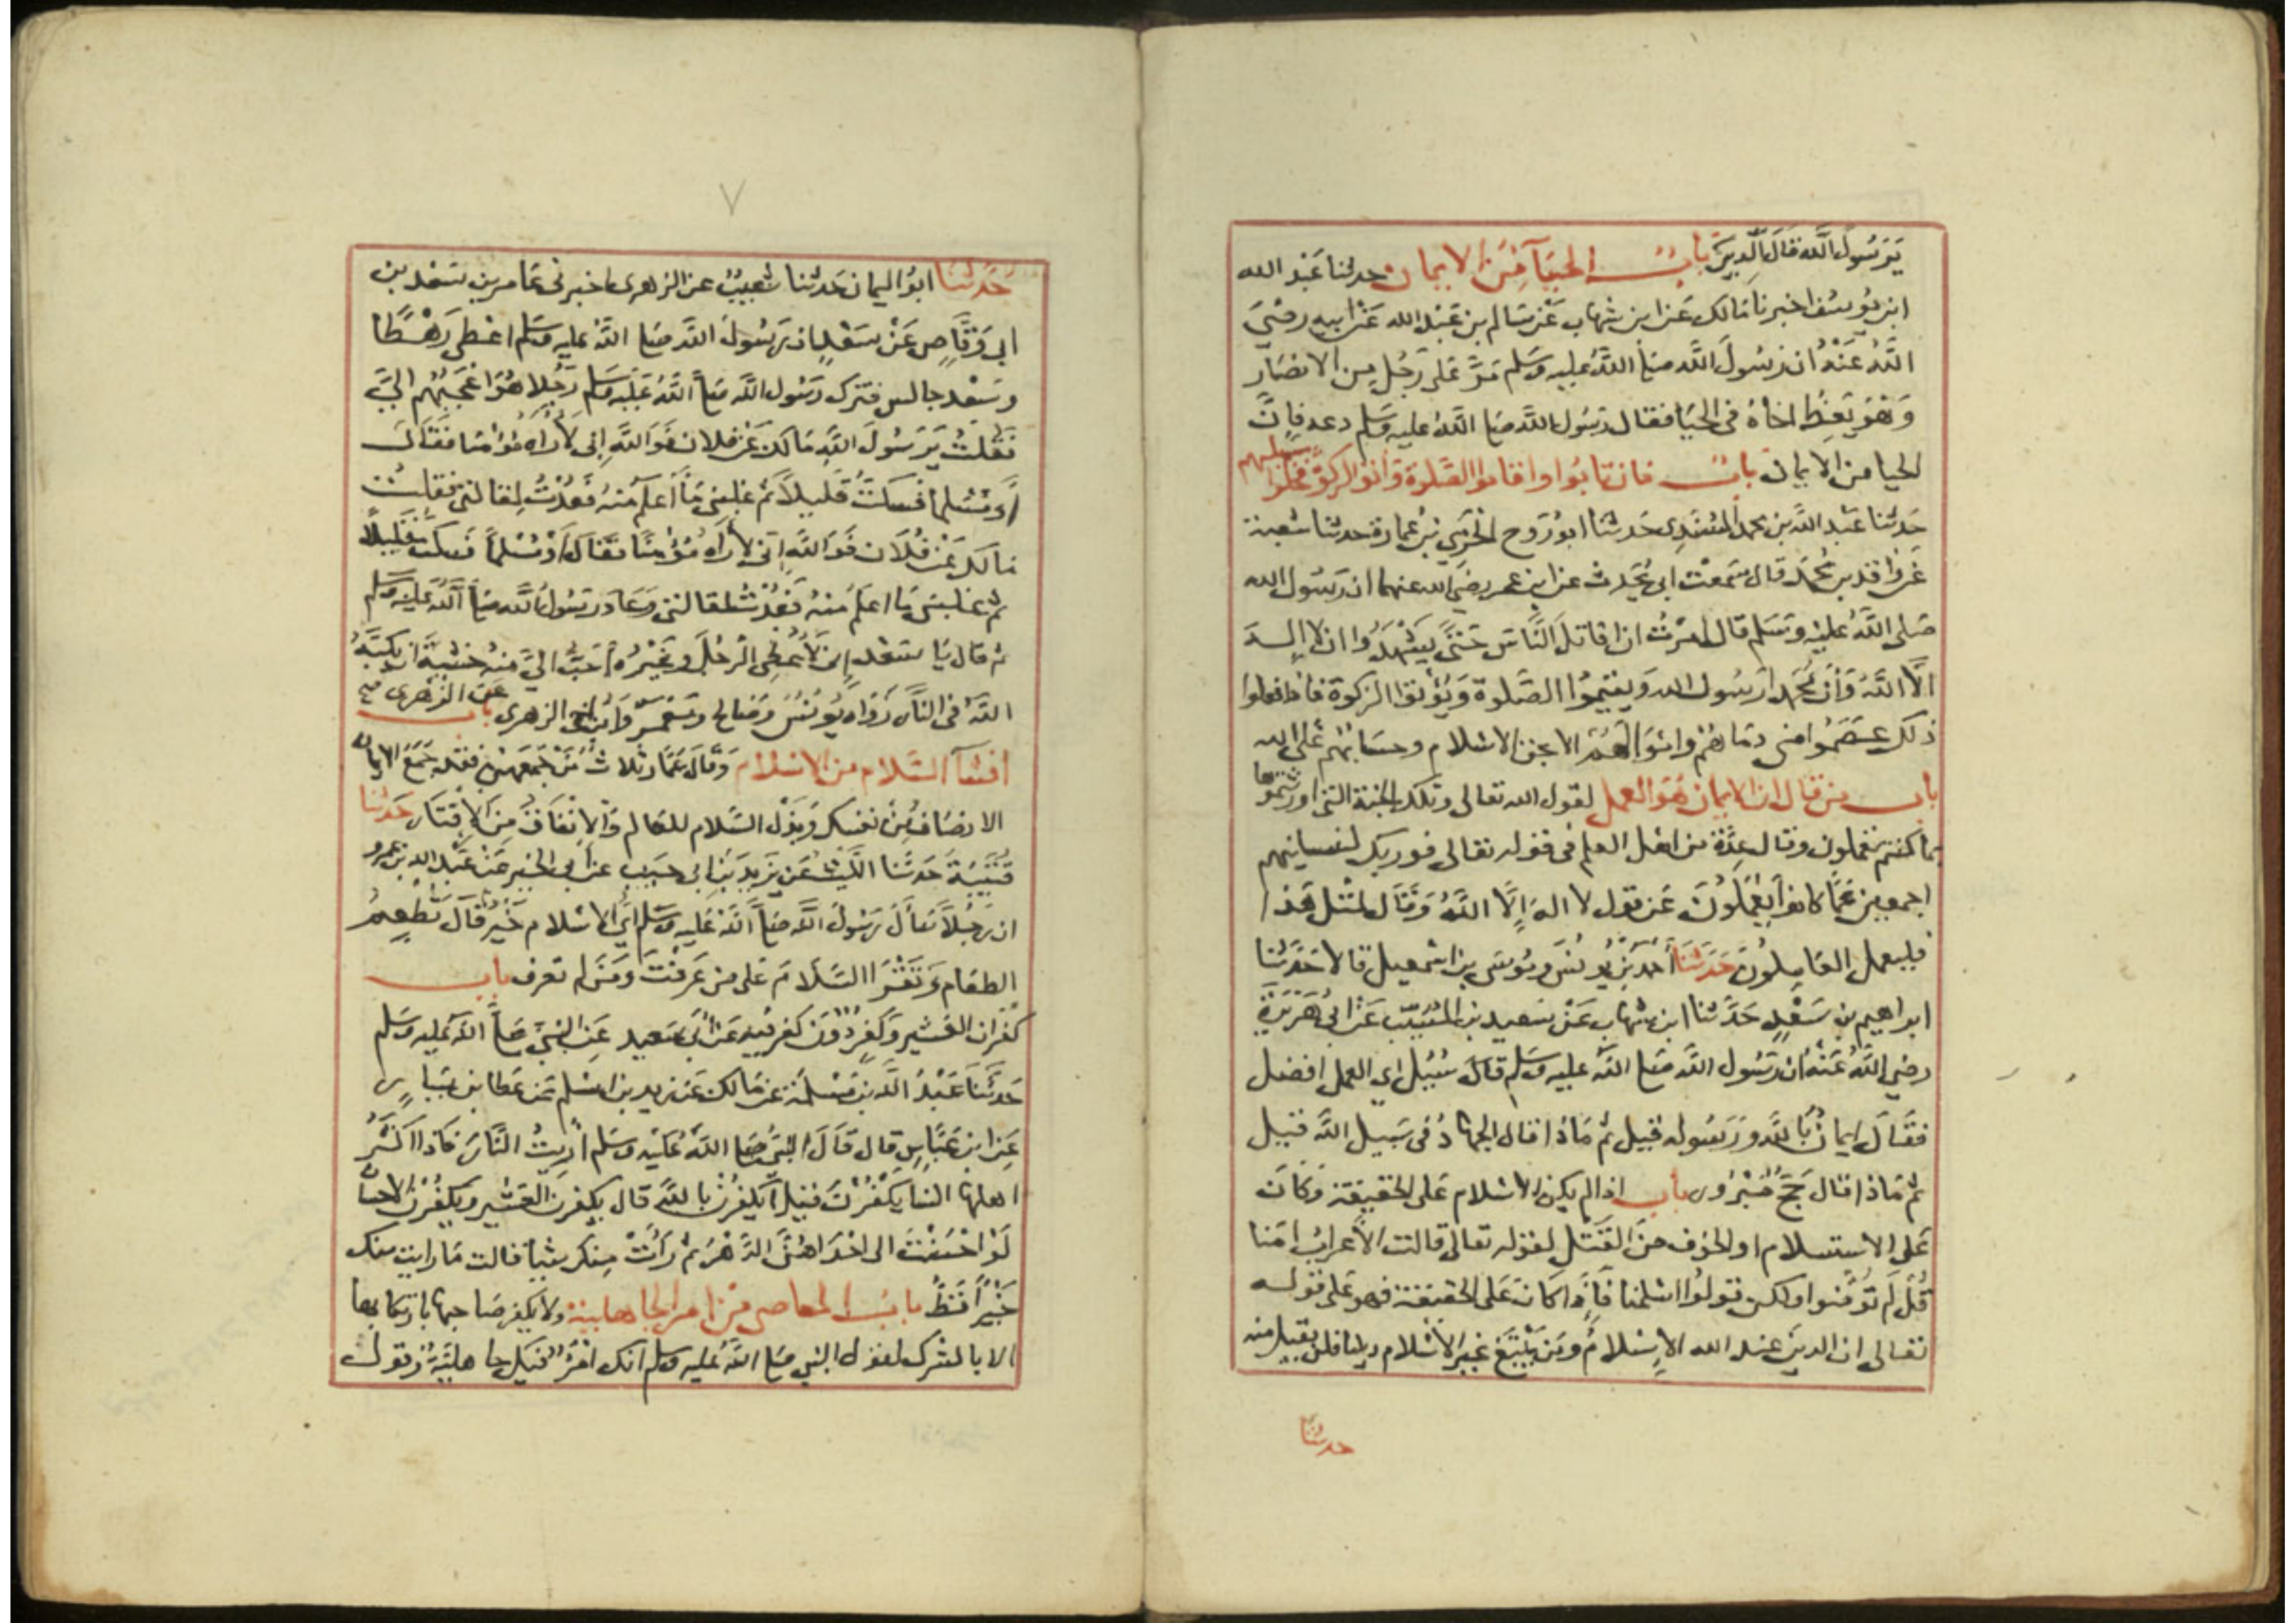 يرسول الله قال الدين باب الحيآ من الايمان حدثنا عبد الله
ابن يوسف اخبرنا مالك عن ابن شهاب عن سالم بن عبد الله عن ابيه رضي
الله عنه ان رسول الله صلى الله عليه وسلم مر على رجل من الانصار
وهو يعظ اخاه في الحيا فقال رسول الله صلى الله عليه وسلم دعه فان
الحيا من الايمان باب فان تابوا واقاموا الصلوة واتوا الزكوة فخلوا سبيلهم
حدثنا عبد الله بن محمد المسندي حدثنا ابو روح الحرمي بن عمارة حدثنا شعبة
عن واقد بن محمد قال سمعت ابي يحدث عن ابن عمر رضي الله عنهما ان رسول الله
صلى الله عليه وسلم قال امرت ان اقاتل الناس حتى يشهدوا ان لا اله
الا الله وان محمدا رسول الله ويقيموا الصلوة ويؤتوا الزكوة فاذا فعلوا
ذلك عصموا مني دماهم واموالهم الا بحق الاسلام وحسابهم على الله
باب من قال ان الايمان هو العمل لقول الله تعالى وتلك الجنة التي اورثتموها
بما كنتم تعملون وقال عدة من اهل العلم في قوله تعالى فوربك لنسالنهم
اجمعين عما كانوا يعملون عن قول لا اله الا الله وقال لمثل هذا
فليعمل العاملون حدثنا احمد بن يونس وموسى بن اسمعيل قالا حدثنا
ابراهيم بن سعد حدثنا ابن شهاب عن سعيد بن المسيب عن ابي هريرة
رضي الله عنه ان رسول الله صلى الله عليه وسلم قال سئيل اي العمل افضل
فقال ايمان بالله ورسوله قيل ثم ماذا قال الجهاد في سبيل الله قيل
ثم ماذا قال حج مبرور باب اذا لم يكن الاسلام على الحقيقة وكان
على الاستسلام او الخوف من القتل لقوله تعالى قالت الأعراب امنا
قل لم تؤمنوا ولكن قولوا اسلمنا فاذا كان على الحقيقة فهو على قوله
تعالى ان الدين عند الله الاسلام ومن يبتغ غير الاسلام دينا فلن يقبل منه
حدثنا
٧
حدثنا ابو اليمان حدثنا شعيب عن الزهري اخبرني عامر بن سعد بن
ابي وقاص عن سعد ان رسول الله صلى الله عليه وسلم اعطى رهطا
وسعد جالس فترك رسول الله صلى الله عليه وسلم رجلا هو اعجبهم الي
فقلت يرسول الله مالك عن فلان فوالله اني لأراه مؤمنا فقال
أو مسلما فسكت قليلا ثم غلبني ما اعلم منه فعدت لمقالتي فقلت
مالك عن فلان فوالله اني لأراه مؤمنا فقال أو مسلما فسكت قليلا
ثم غلبني ما اعلم منه فعدت لمقالتي وعاد رسول الله صلى الله عليه وسلم
ثم قال يا سعد إني لأعطي الرجل وغيره أحب الي منه خشية ان يكبه
الله في النار رواه يونس وصالح ومعمر وابن اخي الزهري عن الزهري صح باب
افشآ السلام من الاسلام وقال عمار ثلاث من جمعهن فقد جمع الايمان
الانصاف من نفسك وبذل السلام للعالم والانفاق من الاقتار حدثنا
قتيبة حدثنا الليث عن يزيد بن ابي حبيب عن ابي الخير عن عبد الله بن عمرو
ان رجلا سأل رسول الله صلى الله عليه وسلم اي الاسلام خير قال تطعم
الطعام وتقرا السلام على من عرفت ومن لم تعرف باب
كفران العشير وكفر دون كفر فيه عن أبي سعيد عن النبي صلى الله عليه وسلم
حدثنا عبد الله بن مسلمة عن مالك عن زيد بن اسلم عن عطا بن يسار
عن ابن عباس قال قال النبي صلى الله عليه وسلم أريت النار فاذا اكثر
اهلها النسا يكفرن قيل أيكفرن بالله قال يكفرن العشير ويكفرن الاحسان
لو احسنت الى احداهن الدهر ثم رأت منك شيا قالت ما رايت منك
خيرا قط باب المعاصي من امر الجاهلية ولا يكفر صاحبها بارتكابها
الا بالشرك لقول النبي صلى الله عليه وسلم انك امرؤ فيك جاهلية وقول